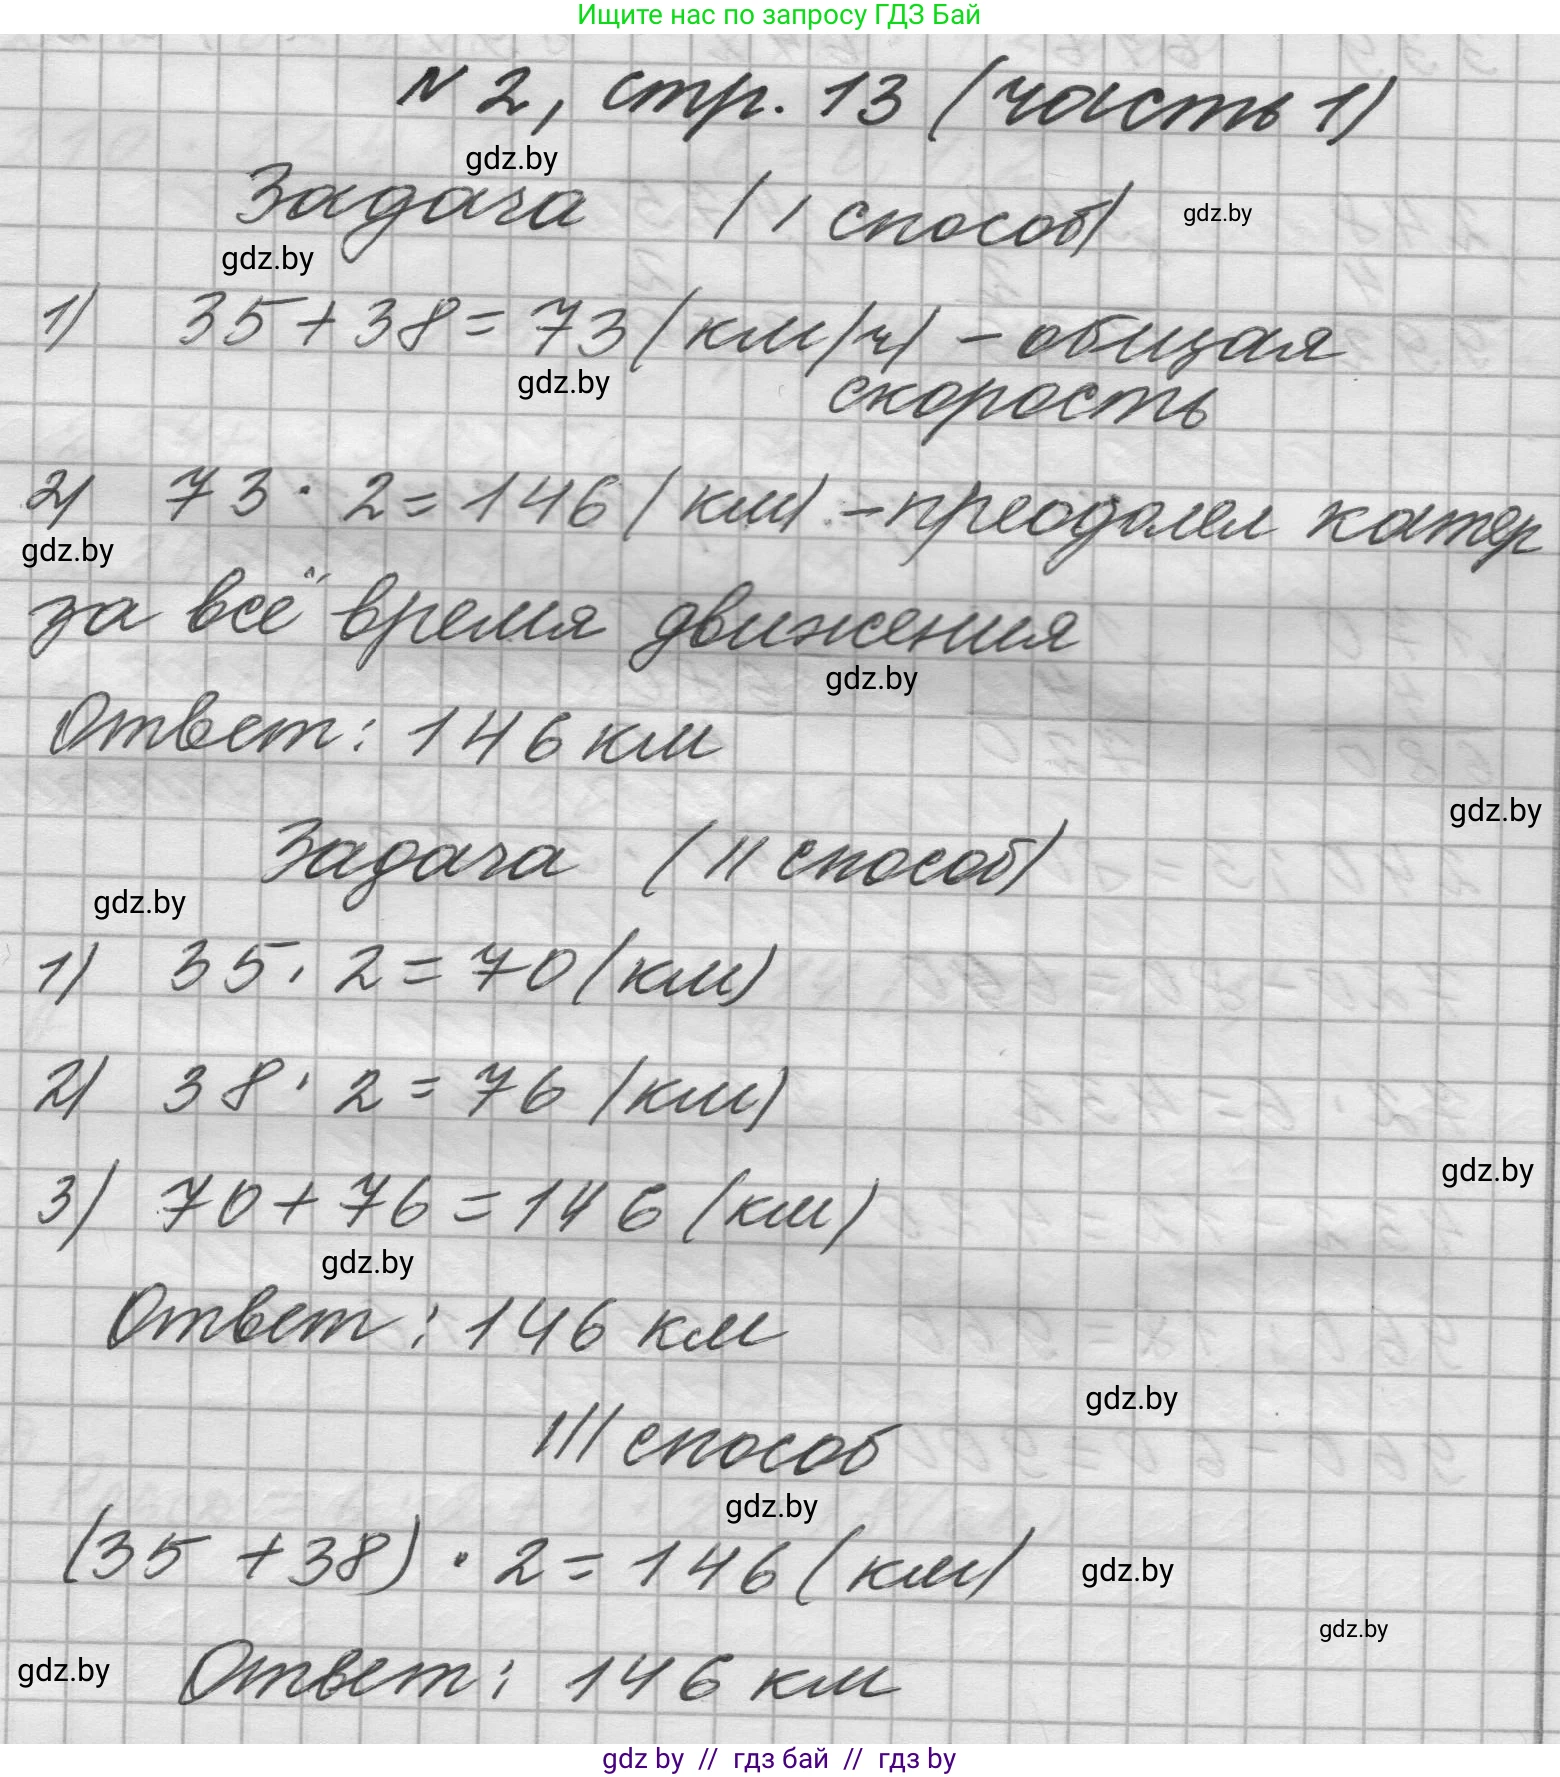 Ищите нас по запросу ГДЗ Бай
N 2, стр. 13 (часть 1)
gdz.by
Задача (I способ)
gdz.by
gdz.by
1) 35 + 38 = 73 (км/ч) - общая
gdz.by
скорость
2) 73 · 2 = 146 (км) - преодолел катер
gdz.by
за всё время движения
gdz.by
Ответ: 146 км
gdz.by
Задача (II способ)
gdz.by
1) 35 · 2 = 70 (км)
2) 38 · 2 = 76 (км)
gdz.by
3) 70 + 76 = 146 (км)
gdz.by
Ответ: 146 км
gdz.by
III способ
gdz.by
(35 + 38) · 2 = 146 (км)
gdz.by
gdz.by
gdz.by
Ответ: 146 км
gdz by // гдз бай // гдз by